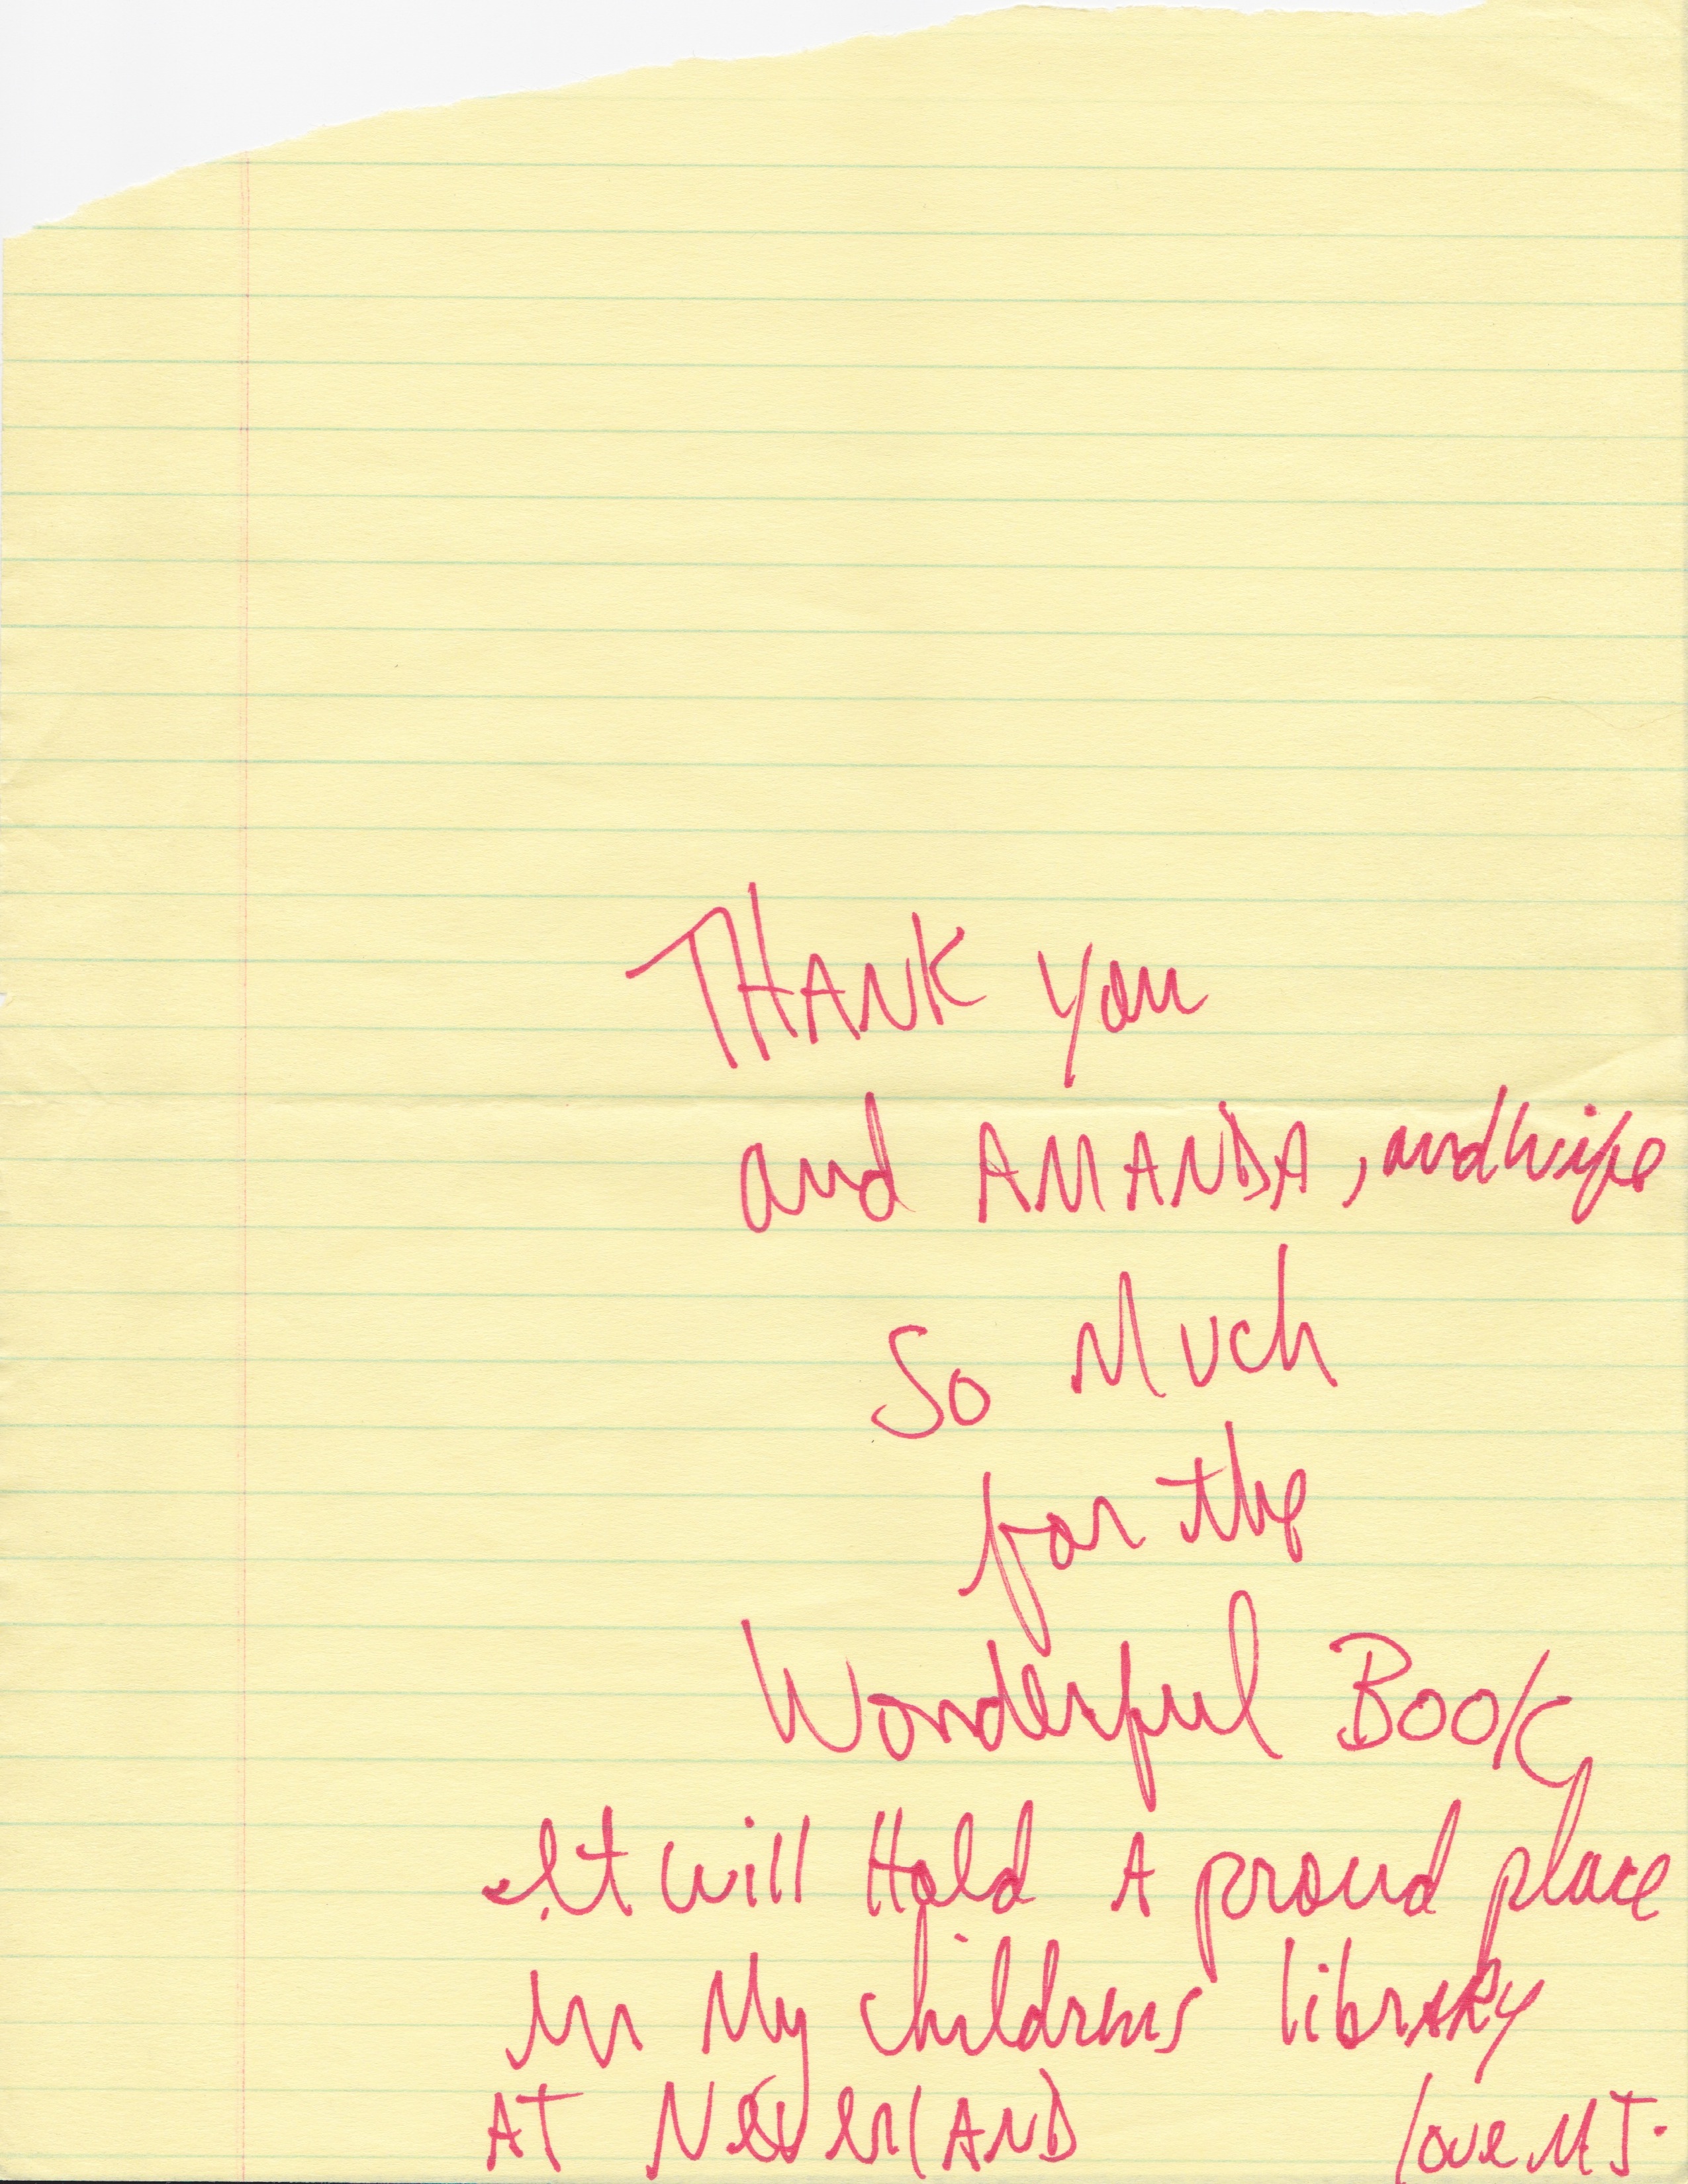 THANK you
and AMANDA, and wife
So Much
for the
Wonderful Book
It will Hold A proud place
in My childrens library
AT NeverlAND love MJ.